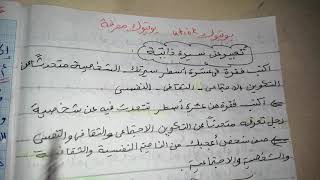 يوتيوك utiik يوتيوك معرفة
تعبير عن سيرة ذاتية
أكتب فقرة في عشرة أسطر سيرتك الشخصية متحدثا عن
التكوين الاجتماعى - الثقافى - النفسى
أكتب فقرة من عشرة أسطر تتحدث فيه عن شخصية
رجل تعرفه متحدثا عن التكوين الاجتماعى والثقافى والنفسى
عن شخص أعجبك من الناحية النفسية والثقافية
والشخصى والاجتماعى